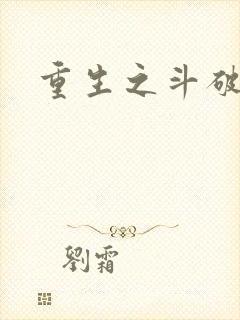 重生之斗破
劉霜